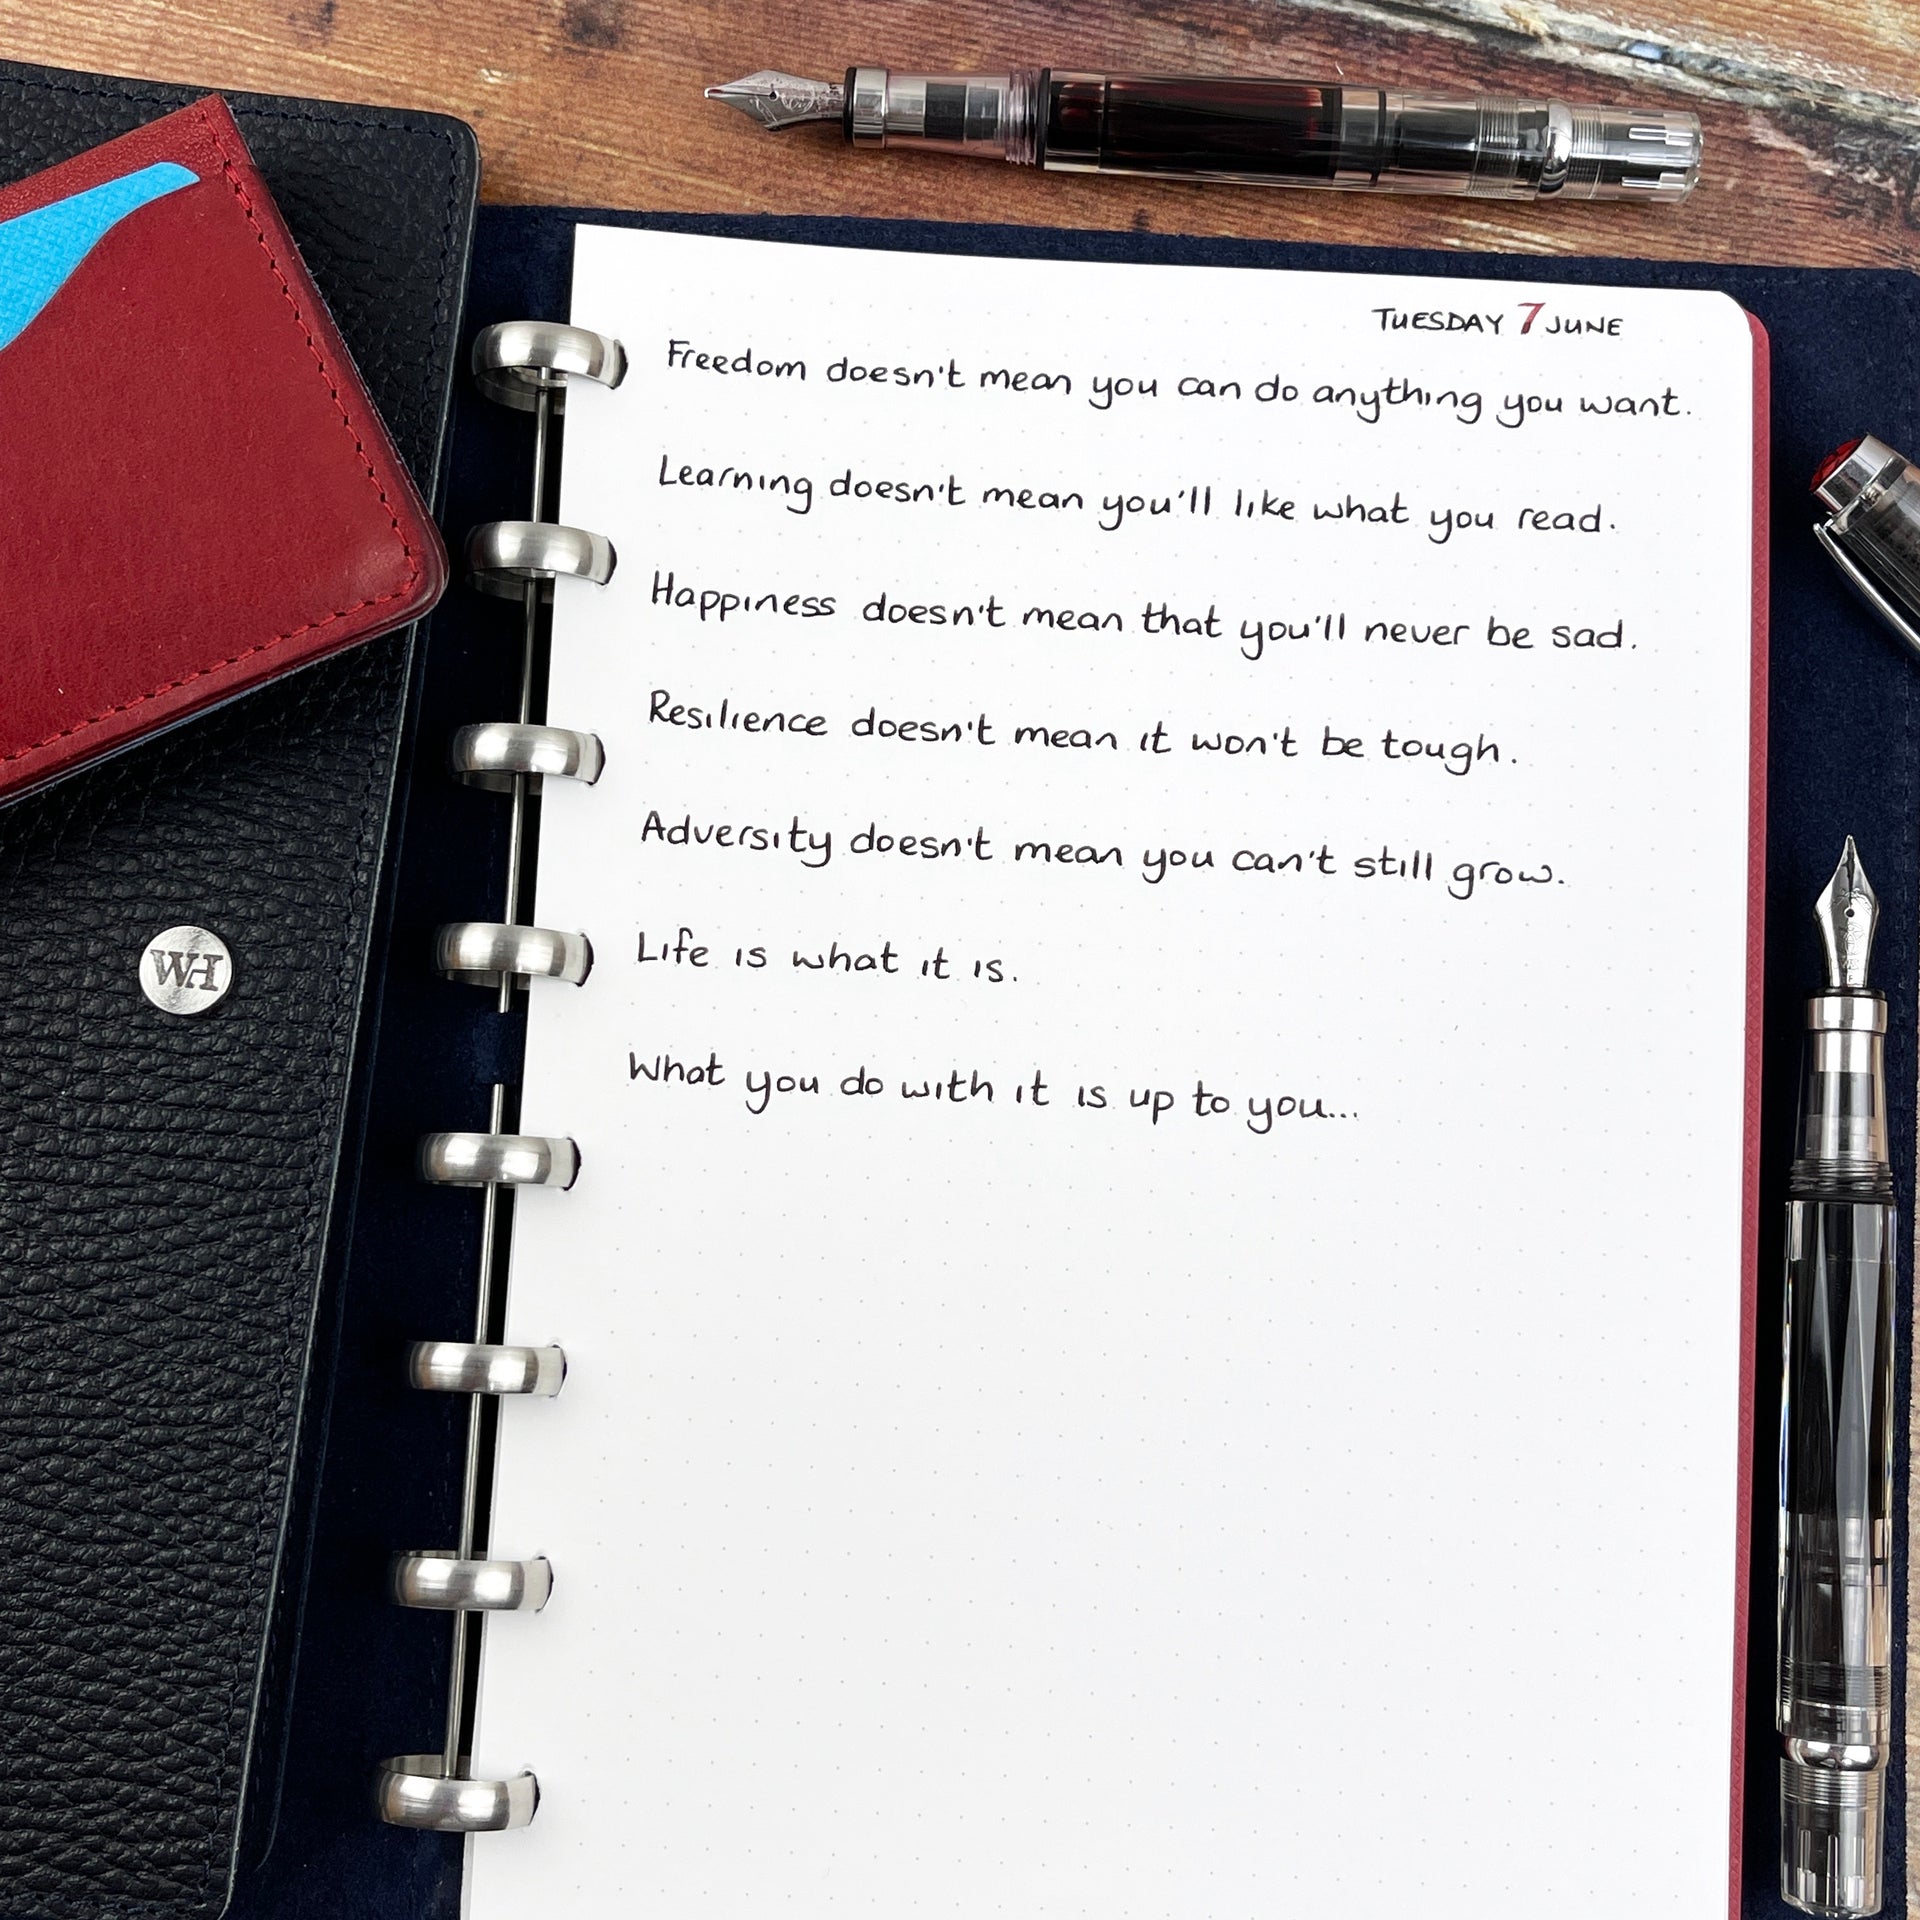 TUESDAY 7 JUNE
Freedom doesn't mean you can do anything you want.
Learning doesn't mean you'll like what you read.
Happiness doesn't mean that you'll never be sad.
Resilience doesn't mean it won't be tough.
Adversity doesn't mean you can't still grow.
Life is what it is.
What you do with it is up to you...
WH